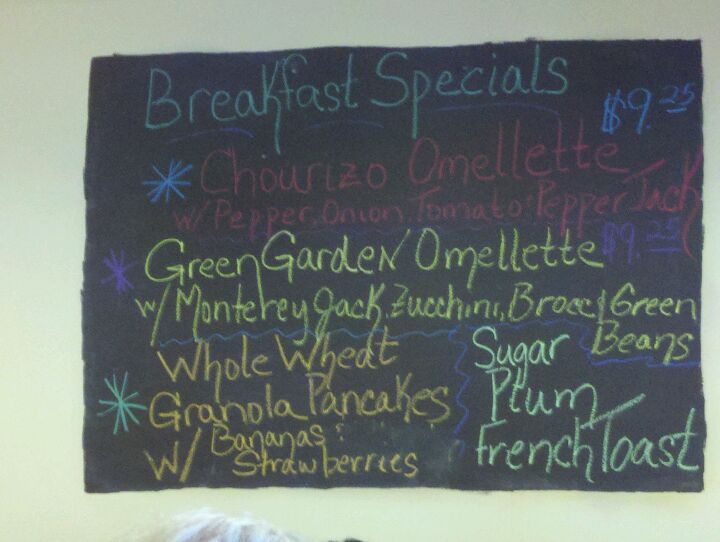 Breakfast Specials
$9.25
Chourizo Omellette
w/ Pepper, Onion, Tomato & Pepper Jack
$9.25
Green Garden Omellette
w/ Monterey Jack, Zucchini, Brocc & Green
Beans
Whole Wheat
Granola Pancakes
w/ Bananas &
Strawberries
Sugar
Plum
French Toast